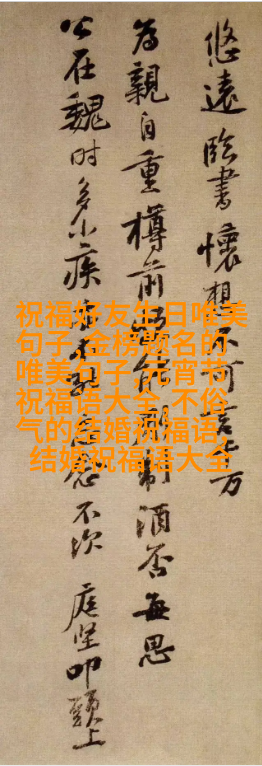 悠遠臨書懷想不可言千万
為親自重樽前尚能制酒否每思
公在魏时多小疾不次 庭坚叩頭上
祝福好友生日唯美
句子,金榜题名的
唯美句子,元宵节
祝福语大全,不俗
气的结婚祝福语,
结婚祝福语大全